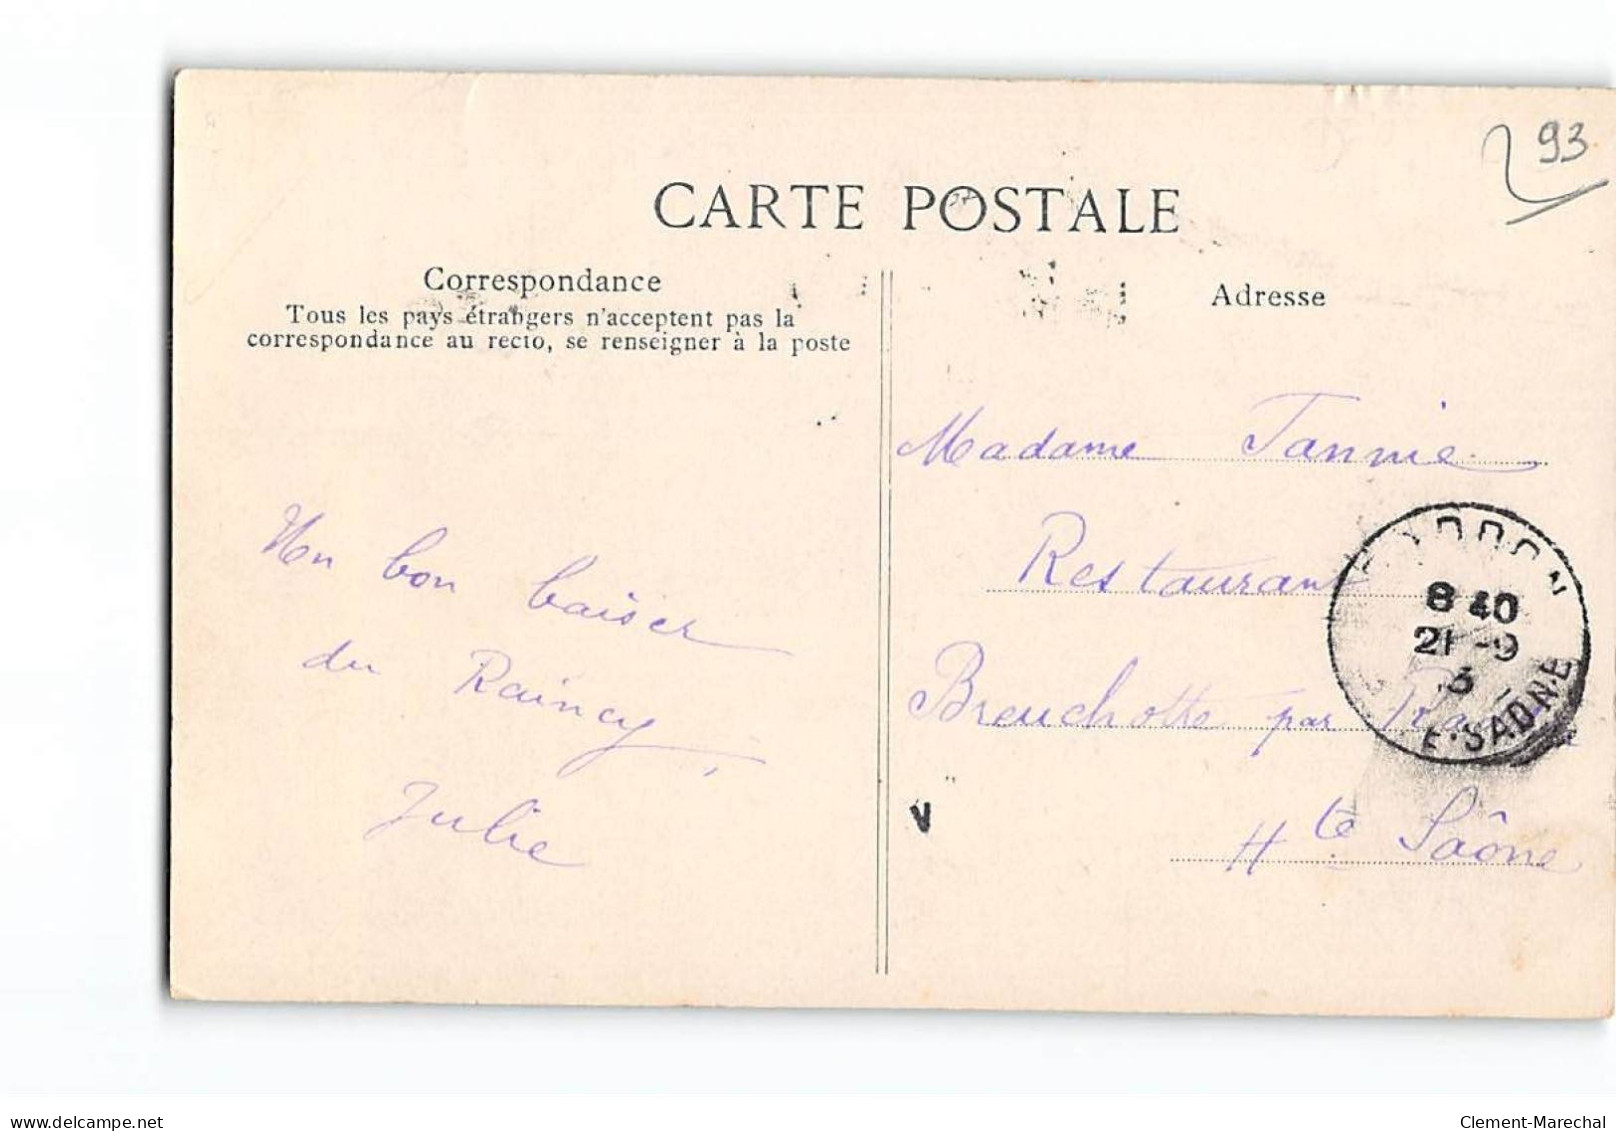 93
CARTE POSTALE
Correspondance
Tous les pays étrangers n'acceptent pas la
correspondance au recto, se renseigner à la poste
Un bon baiser
du Raincy,
Julie
Adresse
Madame Jannie
Restaurant
Breuchotte par
Hte Saône
8 40
21 -9
E-SAONE
delcampe.net
Clement-Marechal